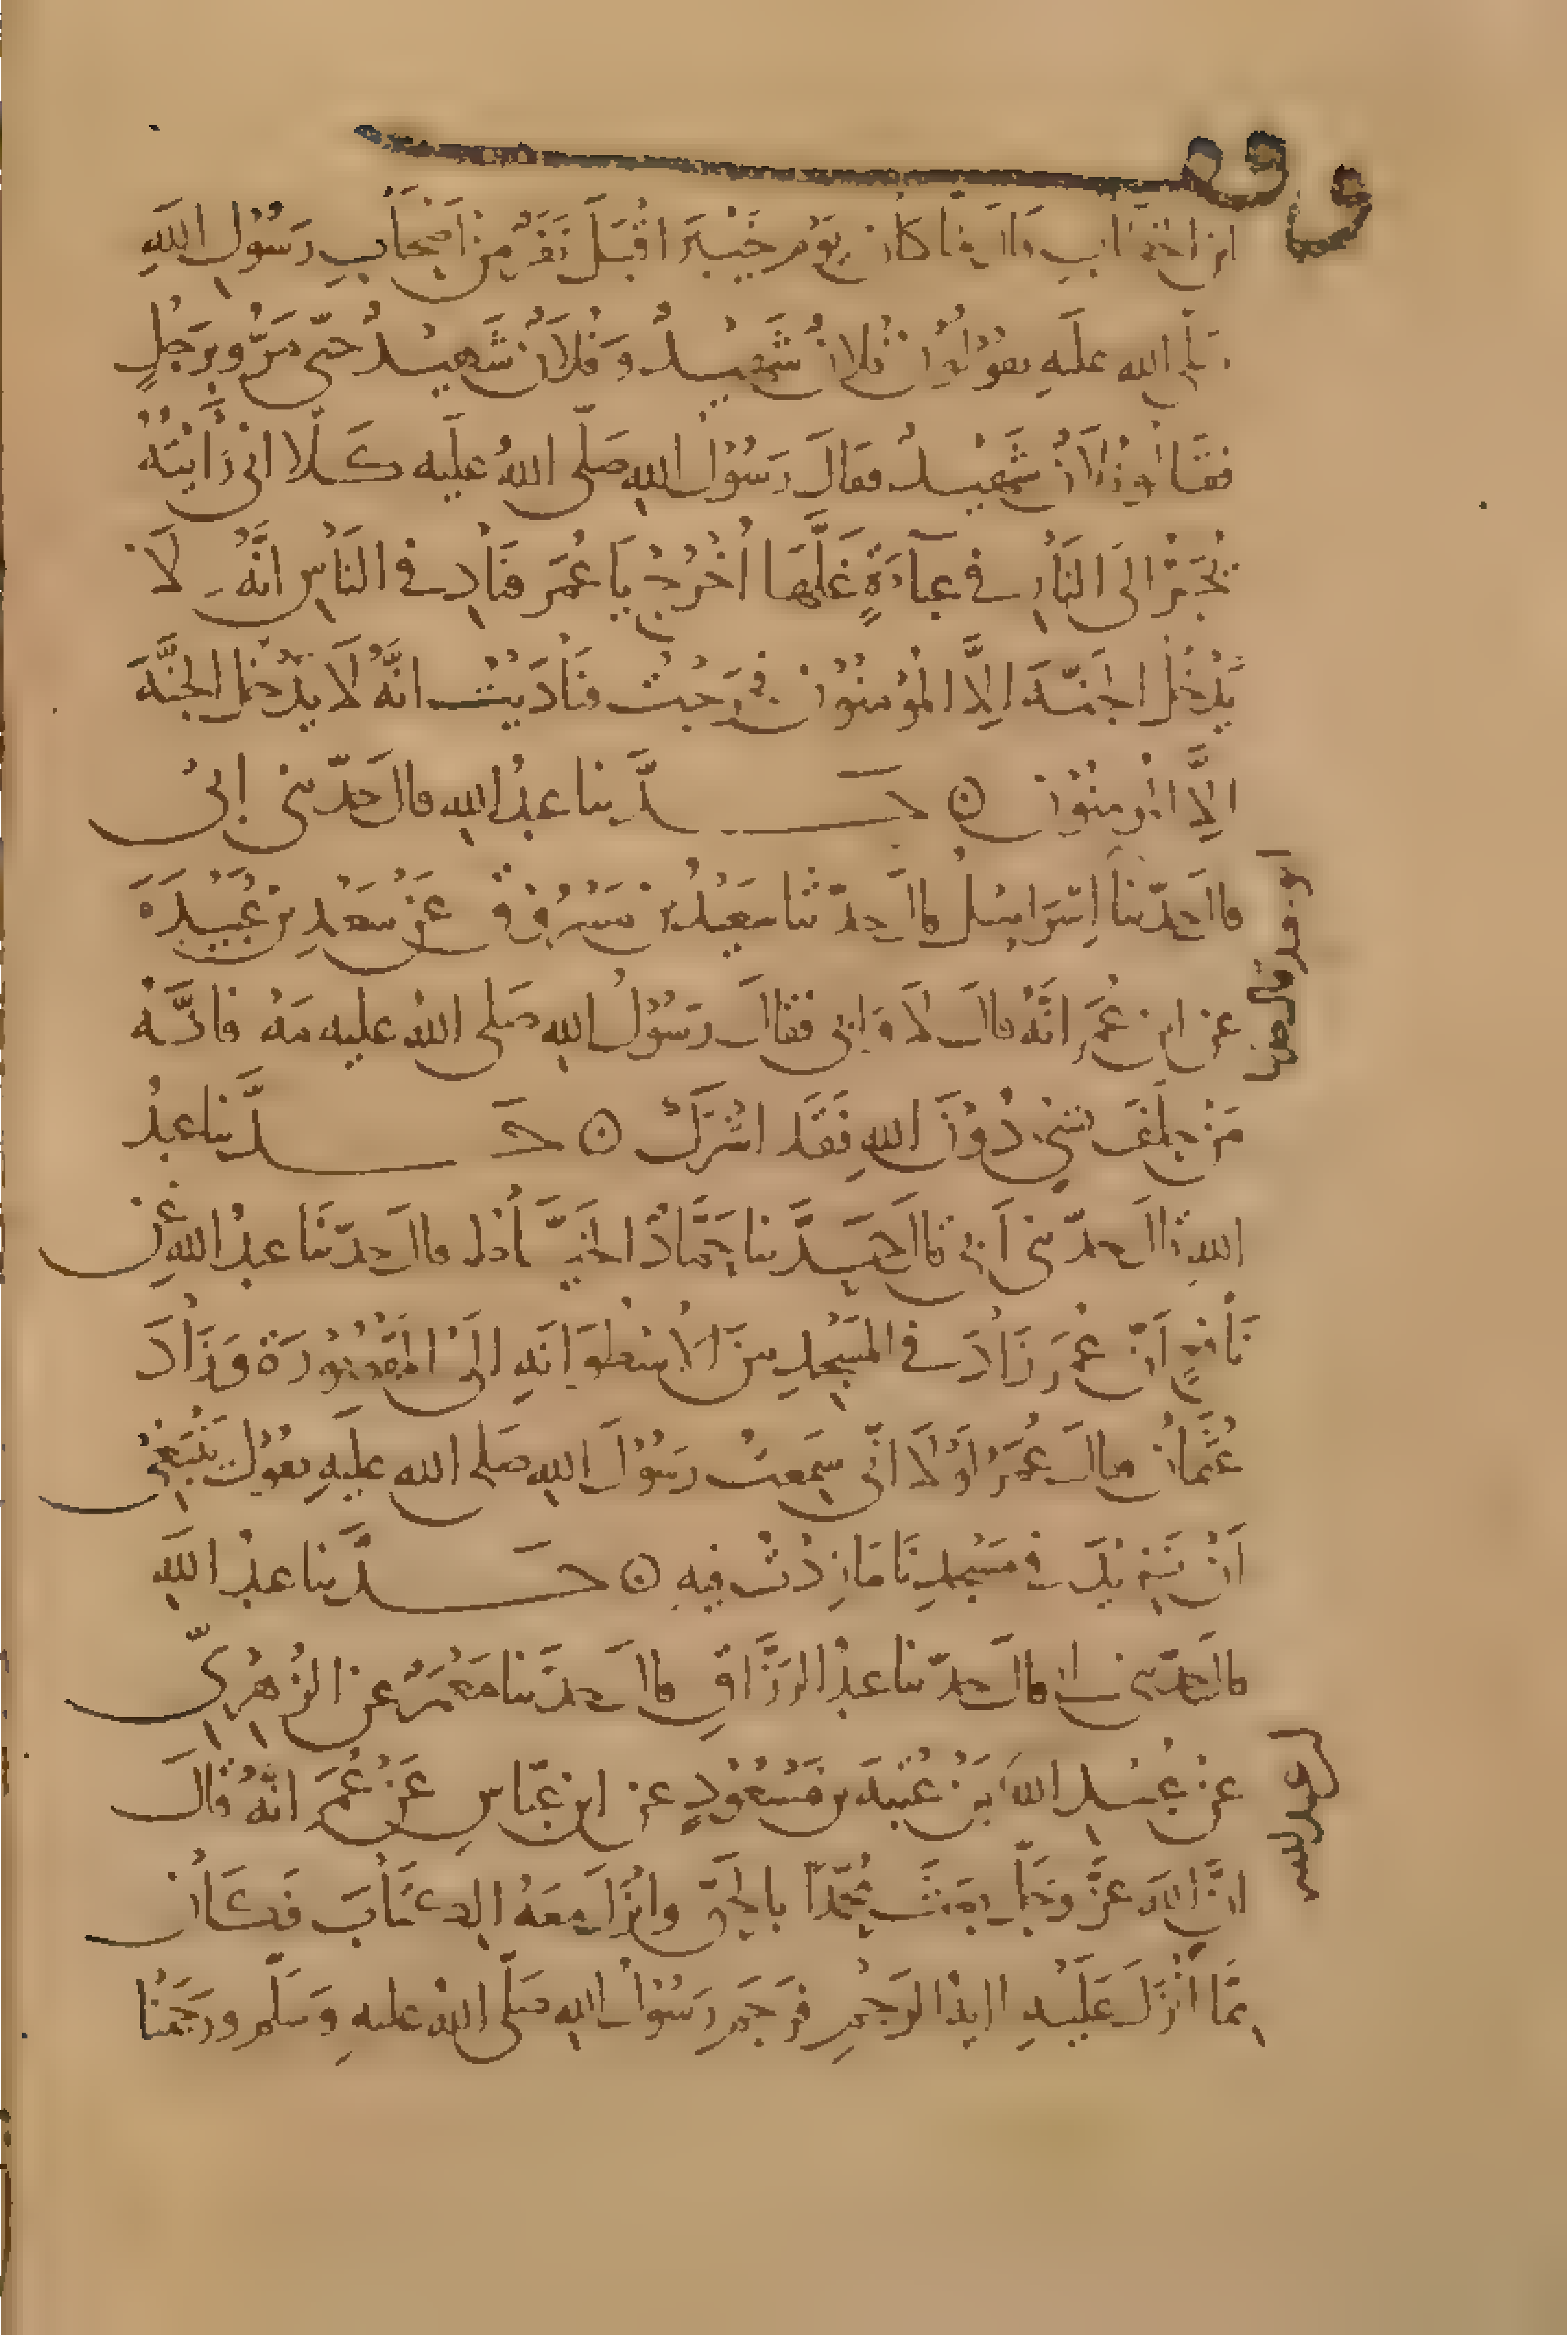 وقف
ابن الخطاب قال لما كان يَوْم خَيْبَرَ اقْبَلَ نَفَرٌ مِنْ اَصْحَابِ رَسُوْلِ اللهِ
صلى الله عليهِ يقوْلوُن فُلانٌ شَهِيْدٌ وَفُلَانٌ شَهِيْدٌ حتّى مَرُّو بِرَجُلٍ
فقَالوا فُلانٌ شَهِيْدٌ فقالَ رَسُوْلُ اللهِ صَلّى اللهُ عليْه كَلّا انى رَأَيْتُهُ
يُجَرُّ الىَ النَارِ فى عبآءَةٍ غَلَّهَا اُخْرُجْ يَا عُمَر فنَادِ فى النَاسِ انَّهُ لَا
يَدْخُلُ الجنّةَ الِاَّ المُؤمِنُوْن فخَرَجْتُ فنَادَيْتُ انَّهُ لَا يدْخل الجنَّةَ
الِاَّ المُومِنُوْن ۞ حَدَّثنا عبدُ الله قال حَدّثنى ابىْ
قال حدّثنا اِسْرَائيلُ قال حدّثنا سَعِيْدُ بن مَسْرُوْقٍ عَنْ سَعْدِ بن عُبَيْدَةَ
عن ابن عُمَرِ انَّهُ قال لَا وَابِى فقالَ رَسُوْلُ اللهِ صَلى اللهُ عليه مَهْ فانَّهُ
مَنْ حلَفَ بشىْ دُوْنَ اللهِ فَقَد اشْرَكَ ۞ حَدَّثنا عبدُ
اللهِ قال حدّثنى اَبِى قال حَدَّثنا حَمَّادٌ الخيَّاط قال حدّثنا عبدُ اللهِ عَن
نَافِعٍ اَنّ عُمَر زَادَ فى المَسْجِدِ مِنَ الاُسْطُوَانَةِ الَىْ المَقْصُوْرَة وَزَادَ
عُثْمَانُ وقال عُمَرُ لَوْلَا انّى سَمِعتُ رَسُوْلَ اللهِ صَلى الله عليهِ يقوْل يَنْبَغِىْ
اَنْ نَزِيْدَ فى مَسْجِدِنَا مَا زِدْتُ فيهِ ۞ حَدَّثنا عبدُ اللهِ
قالَ حَدّثنى ابى قالَ حدّثنا عبدُ الرَزَّاقِ قالَ حدَّثنا مَعْمَرٌ عن الزُهْرِىِّ
عنْ عُبيْدِ اللهِ بْن عُتْبَة بن مَسْعُوْدٍ عن ابن عبّاسٍ عَنْ عُمَرَ انَّهُ قالَ
انَّ اللهَ عزَّ وجَلّ بعَثَ مُحَمّدًا بالحَقّ وانْزَلَ معَهُ الكتَابَ فَكَانَ
مِمّا اَنْزَلَ عَلَيْهِ ايةُ الرَجْمِ فرَجَمَ رَسُوْلُ اللهِ صَلّى اللهُ عليهِ وَسَلّم ورَجَمْنا
ابن عبد الله